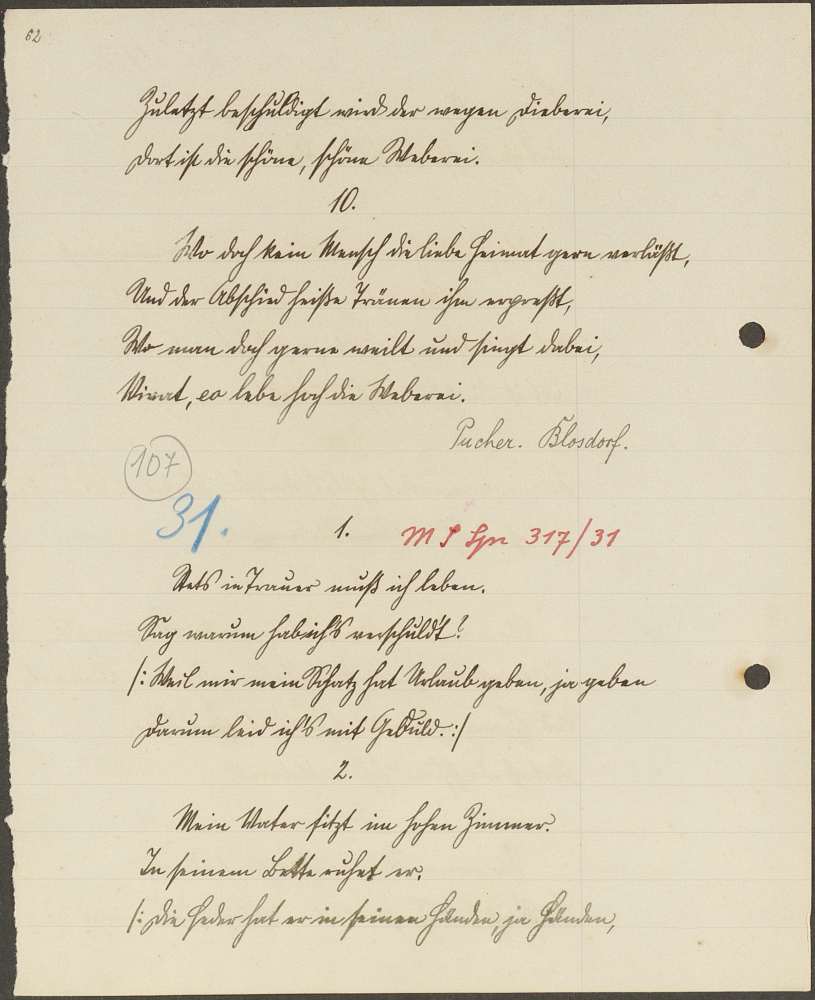 62
Zuletzt beschuldigt wird der wegen Dieberei,
Dort ist die schöne, schöne Weberei.
10.
Wo doch kein Mensch die liebe Heimat gern verläßt,
Und der Abschied heiße Tränen ihm erpreßt,
Wo man doch gerne weilt und singt dabei,
Vivat, es lebe hoch die Weberei.
Pucher. Blosdorf.
107
31.
1.
317/31
Stets in Trauer muß ich leben.
Sag warum hab ich's verschuld't?
/: Weil mir mein Schatz hat Urlaub geben, ja geben
Darum leid ich's mit Geduld. :/
2.
Mein Vater sitzt im hohen Zimmer.
In seinem Bette ruhet er.
/: Die Feder hat er in seinen Händen, ja Händen,